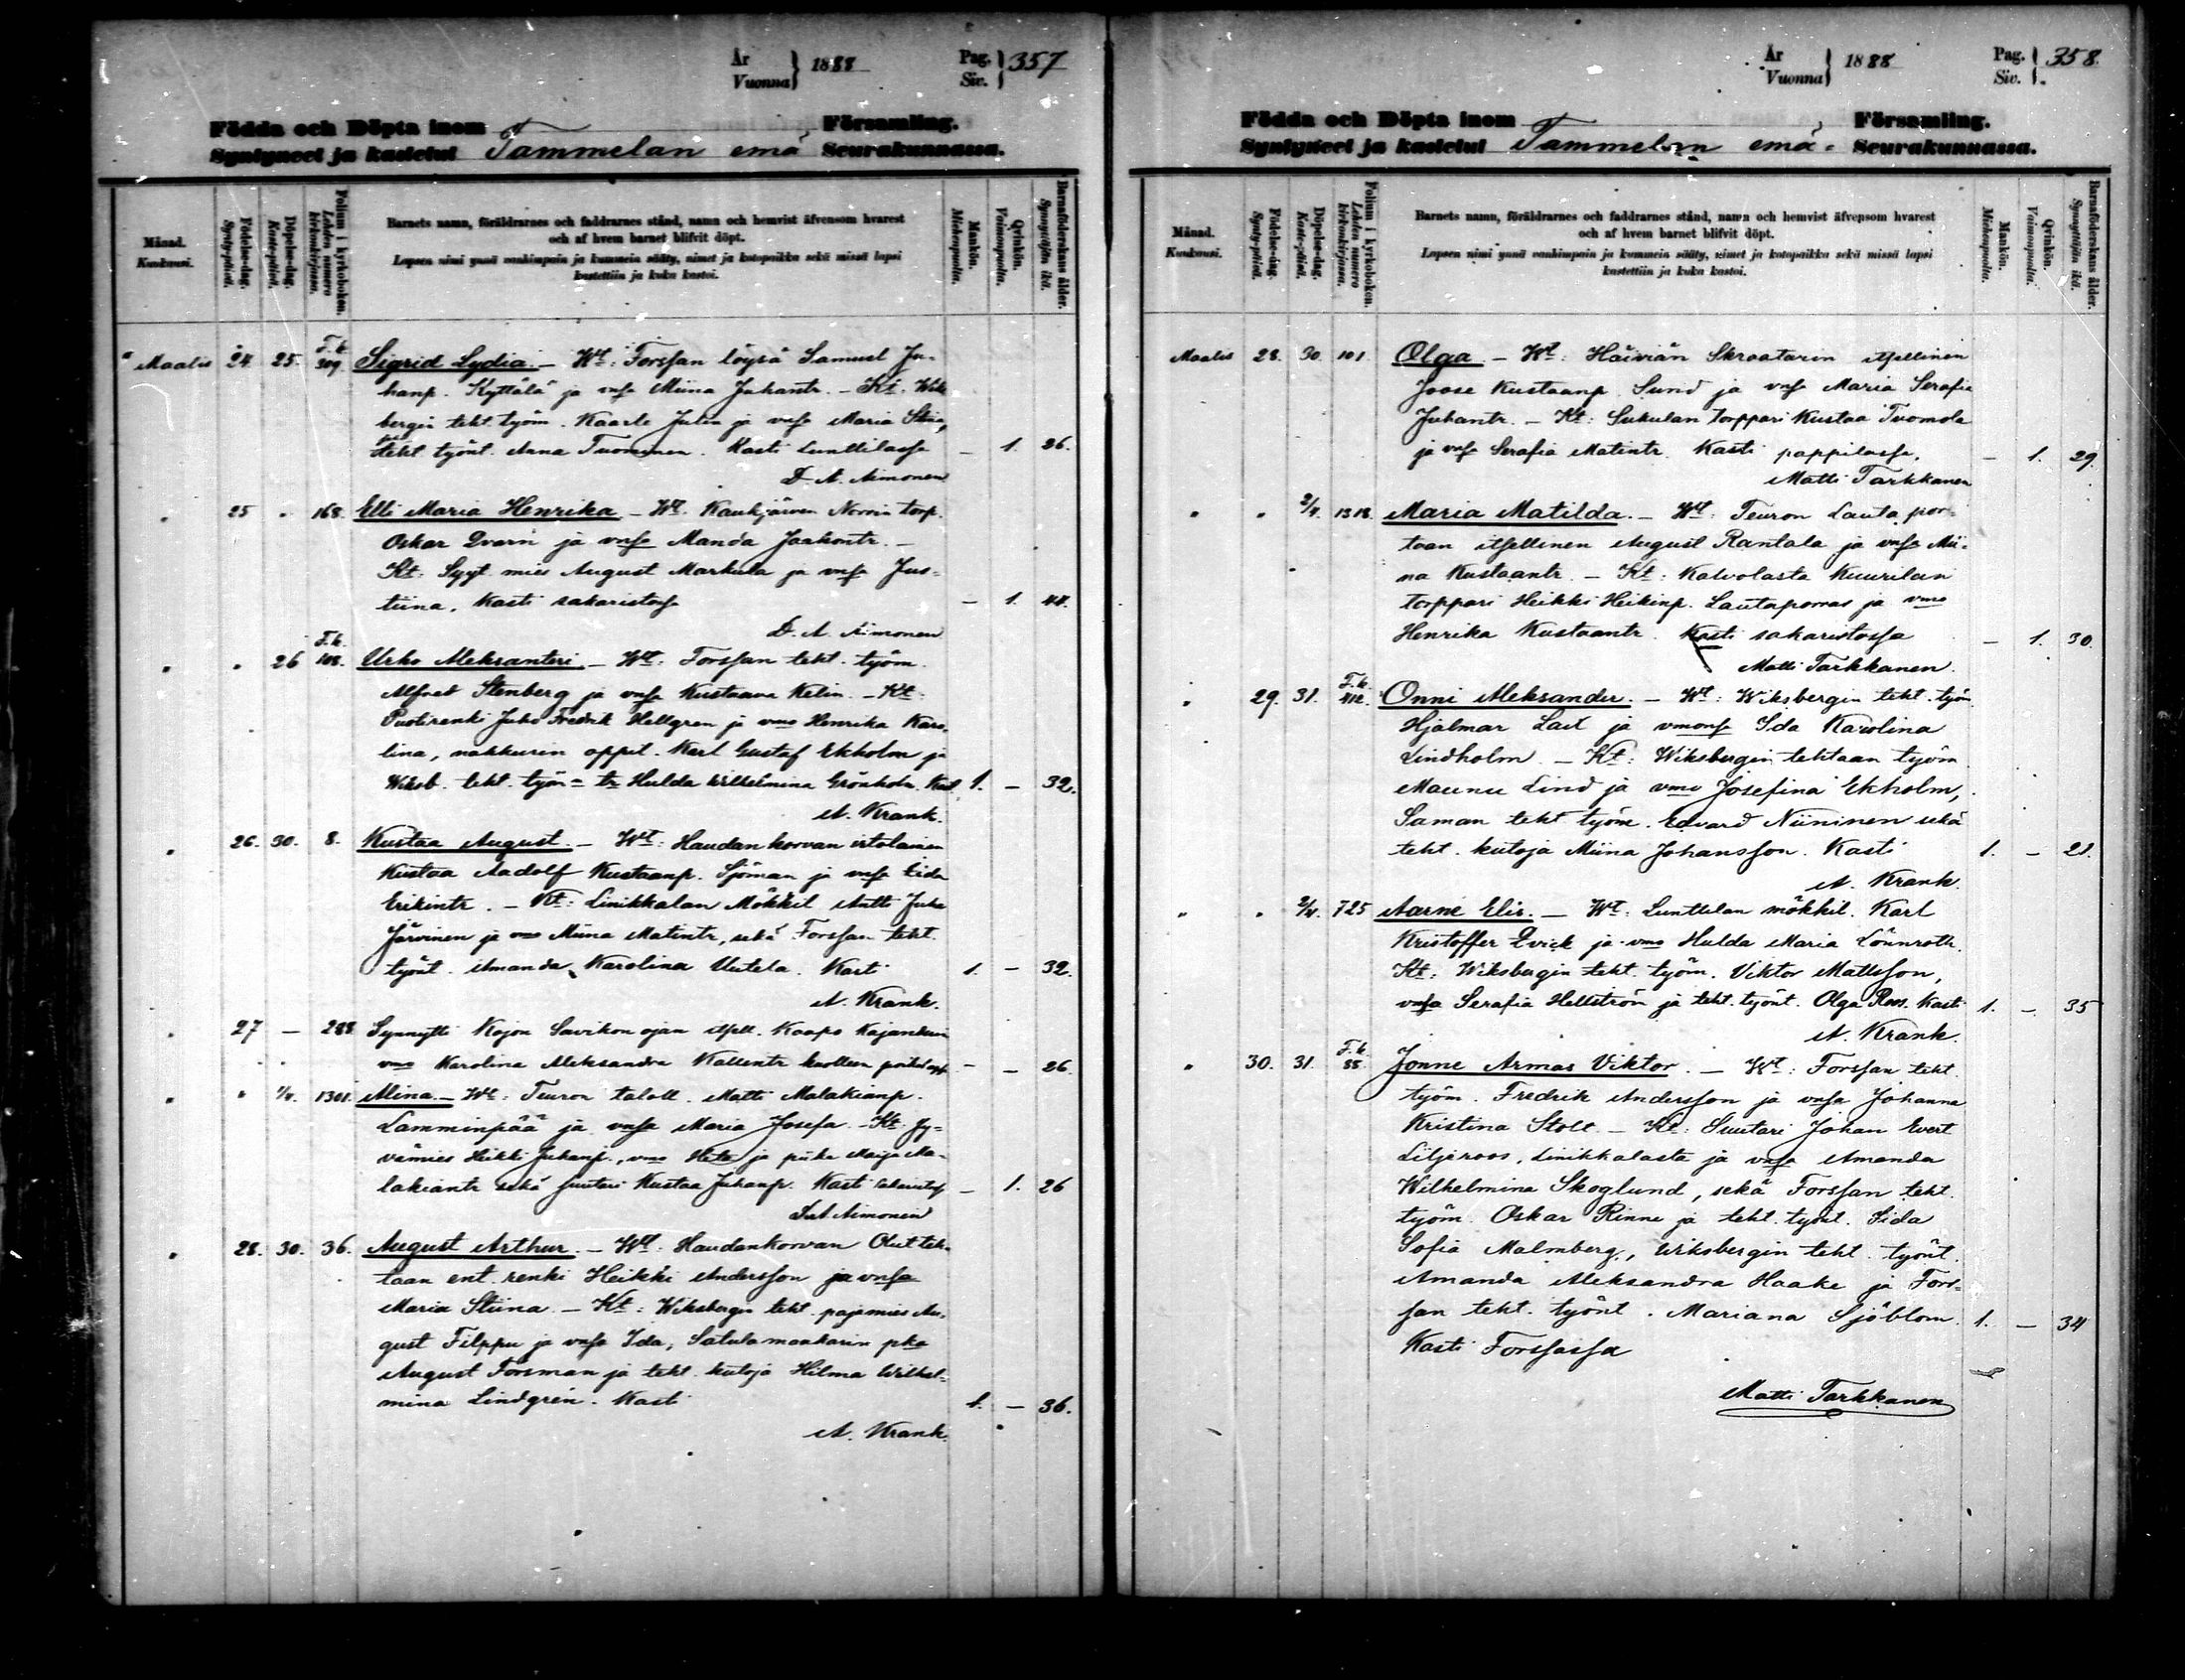 År
Vuonna } 1888
Pag.
Siv. } 357
Födda och Döpta inom Församling.
Syntyneet ja kastetut Tammelan emä Seurakunnassa.
Månad.
Kuukausi.
Födelse-dag.
Synty-päivä.
Döpelse-dag.
Kaste-päivä.
Folium i kyrkoboken.
Lehden numero kirkonkirjassa.
Barnets namn, föräldrarnes och faddrarnes stånd, namn och hemvist äfvensom hvarest
och af hvem barnet blifvit döpt.
Lapsen nimi ynnä vanhimpain ja kummein sääty, nimet ja kotopaikka sekä missä lapsi
kastettiin ja kuka kastoi.
Mankön.
Miehenpuolta.
Qvinkön.
Vaimonpuolta.
Barnaföderskans ålder.
Synnyttäjän ikä.
Maalis 24. 25. F.b. 309. Sigrid Lydia. – Wt: Forssan löysä Samuel Ju-
hanp. Kyttälä ja vnsa Miina Juhantr. – Kt: Wiks
bergin teht. työm. Kaarle Julin ja vnsa Maria Stiina,
teht. työnt. Anna Tuominen. Kasti Lunttilassa – 1. 26.
D. A. Aimonen
" 25 " 168. Elli Maria Henrika – Wt. Kaukjärven Norrin torp.
Oskar Qvarn ja vnsa Manda Jaakontr. –
Kt: Syyt. mies August Markula ja vnsa Jus-
tiina. Kasti sakaristossa – 1. 44.
D. A. Aimonen
" " 26 F.b. 108. Urho Aleksanteri – Wt: Forssan teht. työm.
Alfred Stenberg ja vnsa Kustaava Kelin. – Kt.
Puotirenki Juho Fredrik Hellgren ja vmo Henrika Karo-
lina, nahkurin oppil. Karl Gustaf Ekholm ja
Wiksb. teht. työn- tr Hulda Wilhelmina Grönholm. Kast. 1. – 32.
A. Krank.
" 26. 30. 8. Kustaa August. – Wt: Haudankorvan irtolainen
Kustaa Aadolf Kustaanp. Sjöman ja vnsa Eida
Erikintr. – Kt: Linikkalan Mökkil Antti Juha
Järvinen ja vmo Miina Matintr, sekä Forssan teht.
työnt. Amanda Karolina Uutela. Kasti 1. – 32.
A. Krank.
" 27 – 288 Synnytti Kojon Savikon ojan itsell. Kaapo Kajanderin
vmo Karolina Aleksandra Kallentr kuolleen – – 26.
" " 1/4. 1301. Mina – Wt: Teuron taloll. Matti Malakianp.
Lamminpää ja vnsa Maria Josefa. – Kt: Jy-
vämies Heikki Juhanp., vmo Heta ja piika Maija Ma-
lakiantr sekä suutari Kustaa Juhanp. Kasti – 1. 26
D. A. Aimonen
" 28. 30. 36. August Arthur. – Wt: Haudankorvan Olutteh-
taan ent. renki Heikki Andersson ja vnsa
Maria Stiina. – Kt: Wiksbergin teht. pajamies Au-
gust Filppu ja vnsa Ida, Satulamaakarin pka
August Forsman ja teht. kutoja Hilma Wilhel-
mina Lindgrén. Kasti 1. – 36.
A. Krank.
År
Vuonna } 1888
Pag.
Siv. } 358.
Födda och Döpta inom Församling.
Syntyneet ja kastetut Tammelan emä- Seurakunnassa.
Månad.
Kuukausi.
Födelse-dag.
Synty-päivä.
Döpelse-dag.
Kaste-päivä.
Folium i kyrkoboken.
Lehden numero kirkonkirjassa.
Barnets namn, föräldrarnes och faddrarnes stånd, namn och hemvist äfvensom hvarest
och af hvem barnet blifvit döpt.
Lapsen nimi ynnä vanhimpain ja kummein sääty, nimet ja kotopaikka sekä missä lapsi
kastettiin ja kuka kastoi.
Mankön.
Miehenpuolta.
Qvinkön.
Vaimonpuolta.
Barnaföderskans ålder.
Synnyttäjän ikä.
Maalis 28. 30. 101. Olga – Wt: Häiviän Skraatarin itsellinen
Joose Kustaanp. Sund ja vnsa Maria Serafia
Juhantr. – Kt: Sukulan torppari Kustaa Tuomola
ja vnsa Serafia Matintr. Kasti pappilassa. – 1. 29.
Matti Tarkkanen
" " 2/4. 1318. Maria Matilda. – Wt: Teuron Lauta por-
taan itsellinen August Rantala ja vnsa Mii-
na Kustaantr – Kt: Kalvolasta Kuurilan
torppari Heikki Heikinp. Lautaporras ja vmo
Henrika Kustaantr. Kasti sakaristossa – 1. 30.
Matti Tarkkanen.
" 29. 31. F.b. 412. Onni Aleksander. – Wt: Wiksbergin teht. työm.
Hjalmar Lait ja vmonsa Ida Karolina
Lindholm. – Kt: Wiksbergin tehtaan työm.
Maunu Lind ja vmo Josefina Ekholm,
Saman teht työm. Edvard Niininen sekä
teht. kutoja Miina Johansson. Kasti 1. – 21.
A. Krank.
" " 2/4. 725 Aarne Elis. – Wt: Lunttilan mökkil. Karl
Kristoffer Qvick ja vmo Hulda Maria Lönnroth.
Kt: Wiksbergin teht. työm. Viktor Mattsson,
vnsa Serafia Hellström ja teht. työnt. Olga Roos. Kasti 1. – 35
A. Krank.
" 30. 31. F.b. 88. Jonne Armas Viktor. – Wt: Forssan teht.
työm. Fredrik Andersson ja vnsa Johanna
Kristina Stolt – Kt: Suutari Johan Evert
Liljeroos, Linikkalasta ja vnsa Amanda
Wilhelmina Skoglund, sekä Forssan teht.
työm. Oskar Rinne ja teht. työnt. Iida
Sofia Malmberg, Wiksbergin teht. työnt.
Amanda Aleksandra Haake ja Fors-
san teht. työnt. Mariana Sjöblom. 1. – 34
Kasti Forssassa
Matti Tarkkanen